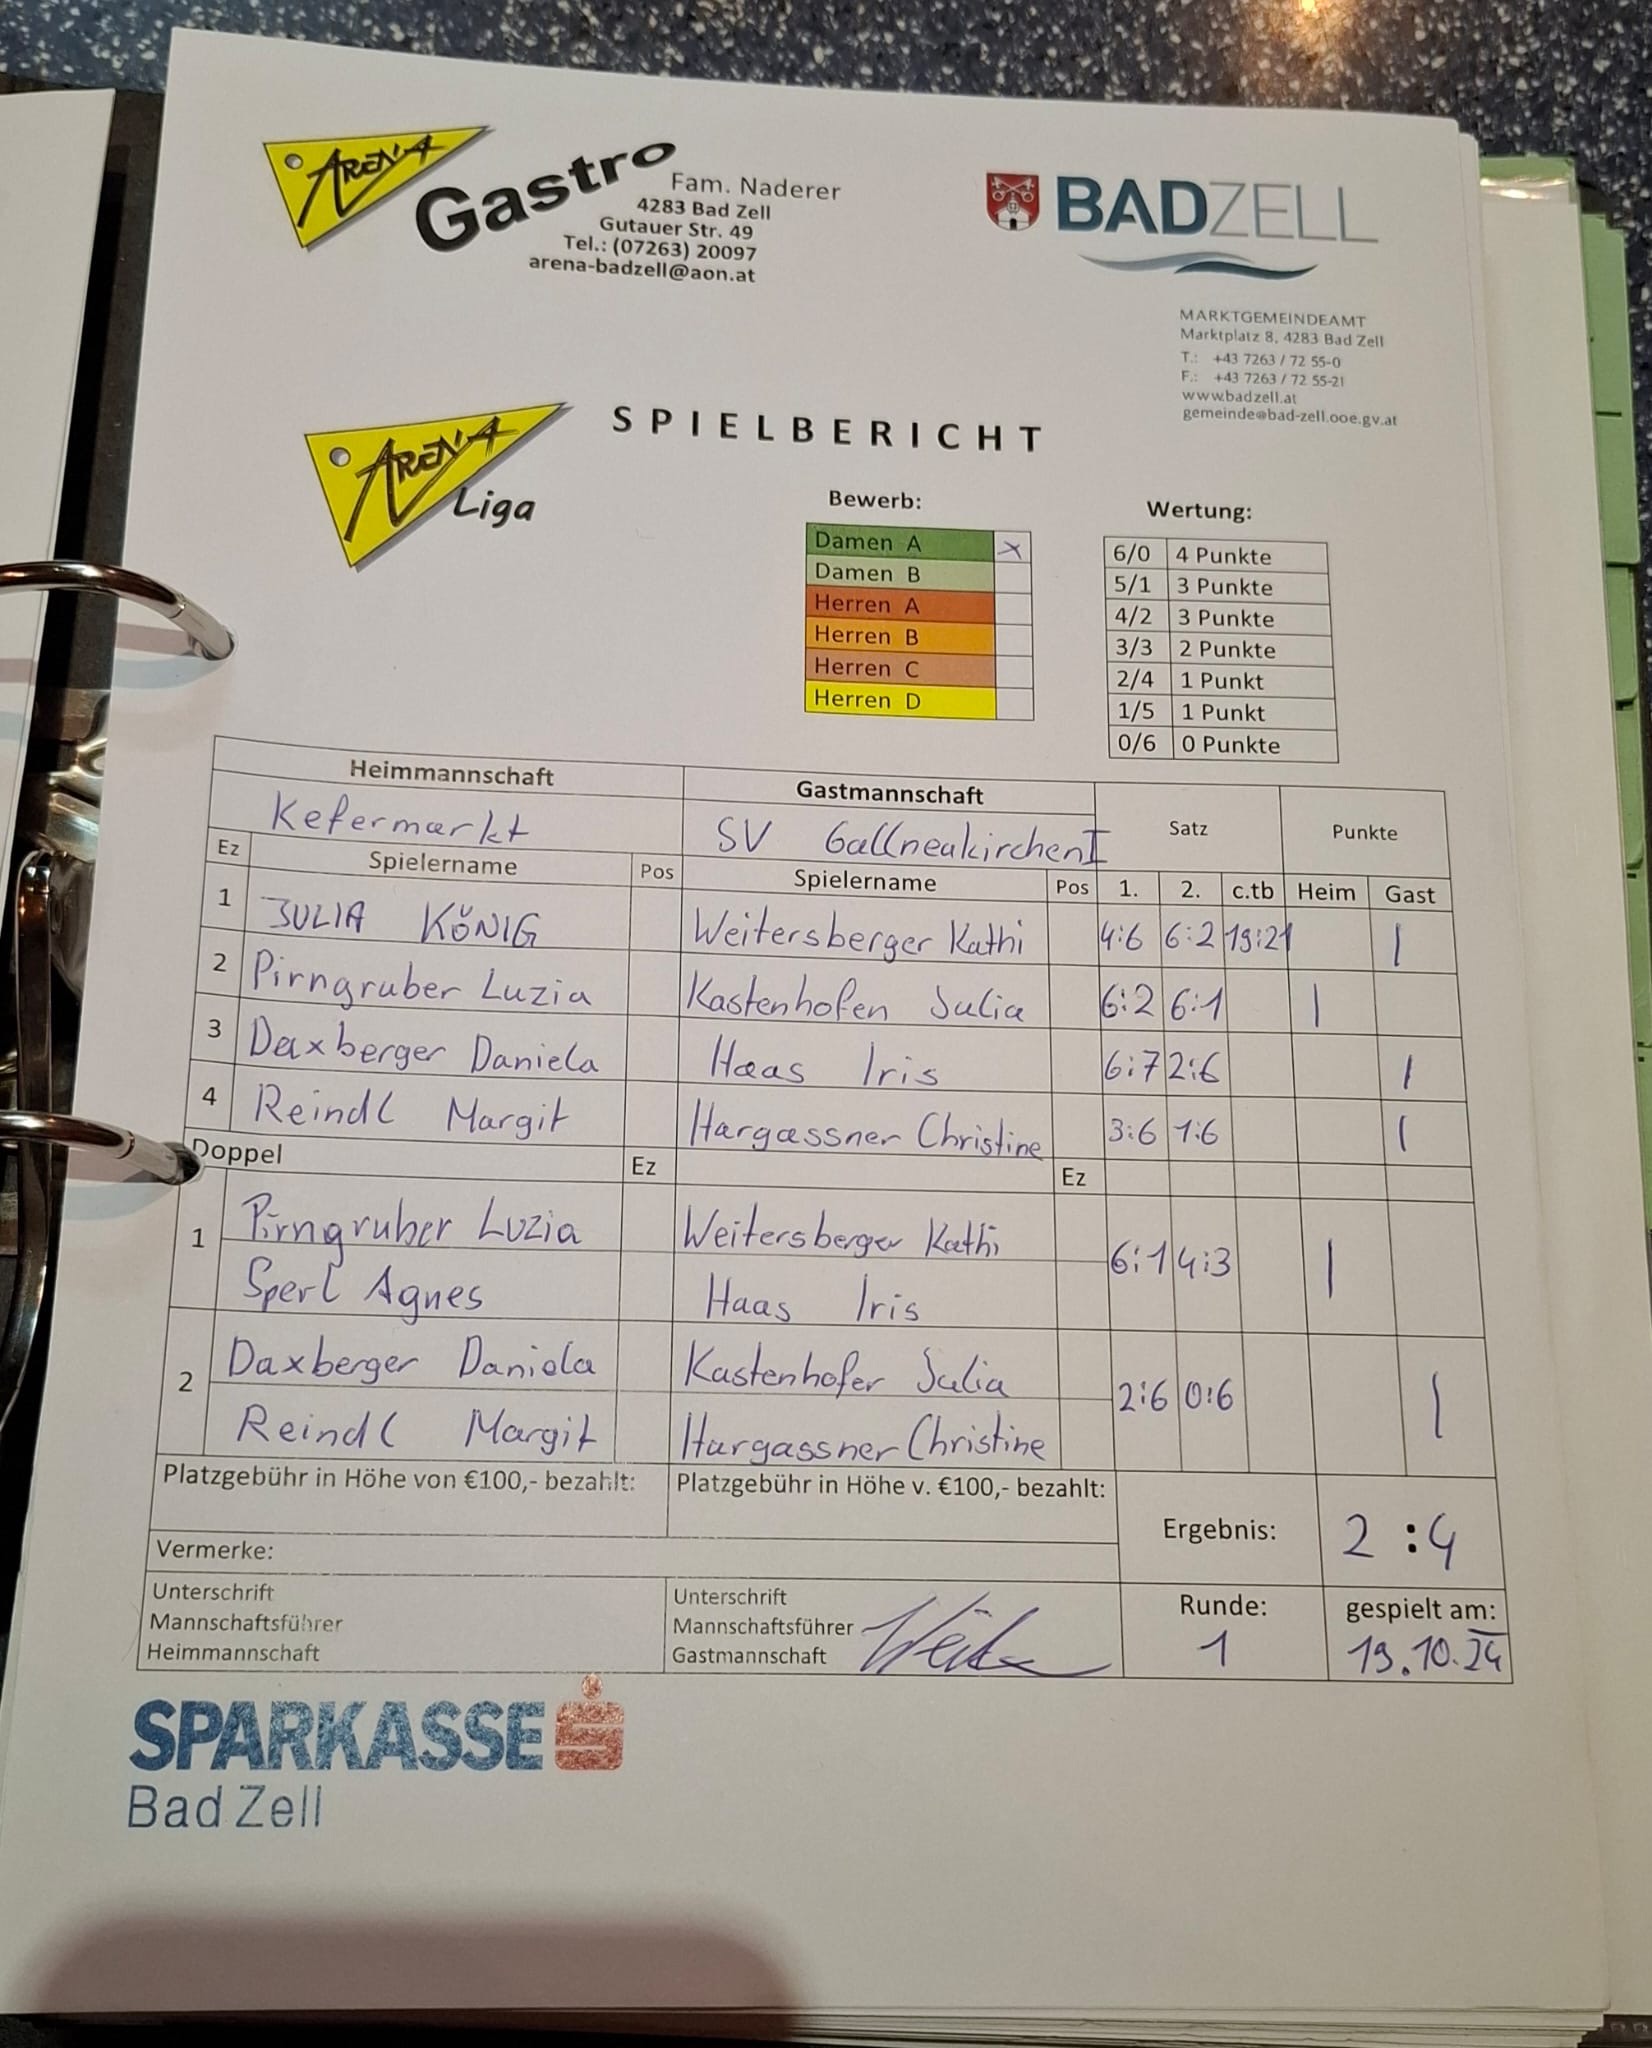 ARENA Gastro
Fam. Naderer
4283 Bad Zell
Gutauer Str. 49
Tel.: (07263) 20097
arena-badzell@aon.at
BADZELL
MARKTGEMEINDEAMT
Marktplatz 8, 4283 Bad Zell
T.: +43 7263 / 72 55-0
F.: +43 7263 / 72 55-21
www.badzell.at
gemeinde@bad-zell.ooe.gv.at
ARENA Liga
SPIELBERICHT
Bewerb:
Damen A x
Damen B
Herren A
Herren B
Herren C
Herren D
Wertung:
6/0 4 Punkte
5/1 3 Punkte
4/2 3 Punkte
3/3 2 Punkte
2/4 1 Punkt
1/5 1 Punkt
0/6 0 Punkte
Heimmannschaft Gastmannschaft Satz Punkte
Kefermarkt SV Gallneukirchen I
Ez Spielername Pos Spielername Pos 1. 2. c.tb Heim Gast
1 JULIA KÖNIG Weitersberger Kathi 4:6 6:2 19:21 |
2 Pirngruber Luzia Kastenhofen Julia 6:2 6:1 |
3 Daxberger Daniela Haas Iris 6:7 2:6 |
4 Reindl Margit Hargassner Christine 3:6 1:6 |
Doppel Ez Ez
1 Pirngruber Luzia Weitersberger Kathi 6:1 4:3 |
Sperl Agnes Haas Iris
2 Daxberger Daniela Kastenhofer Julia 2:6 0:6 |
Reindl Margit Hargassner Christine
Platzgebühr in Höhe von €100,- bezahlt: Platzgebühr in Höhe v. €100,- bezahlt:
Ergebnis: 2 : 4
Vermerke:
Unterschrift Mannschaftsführer Heimmannschaft
Unterschrift Mannschaftsführer Gastmannschaft
Runde: 1
gespielt am: 19.10.24
SPARKASSE
Bad Zell